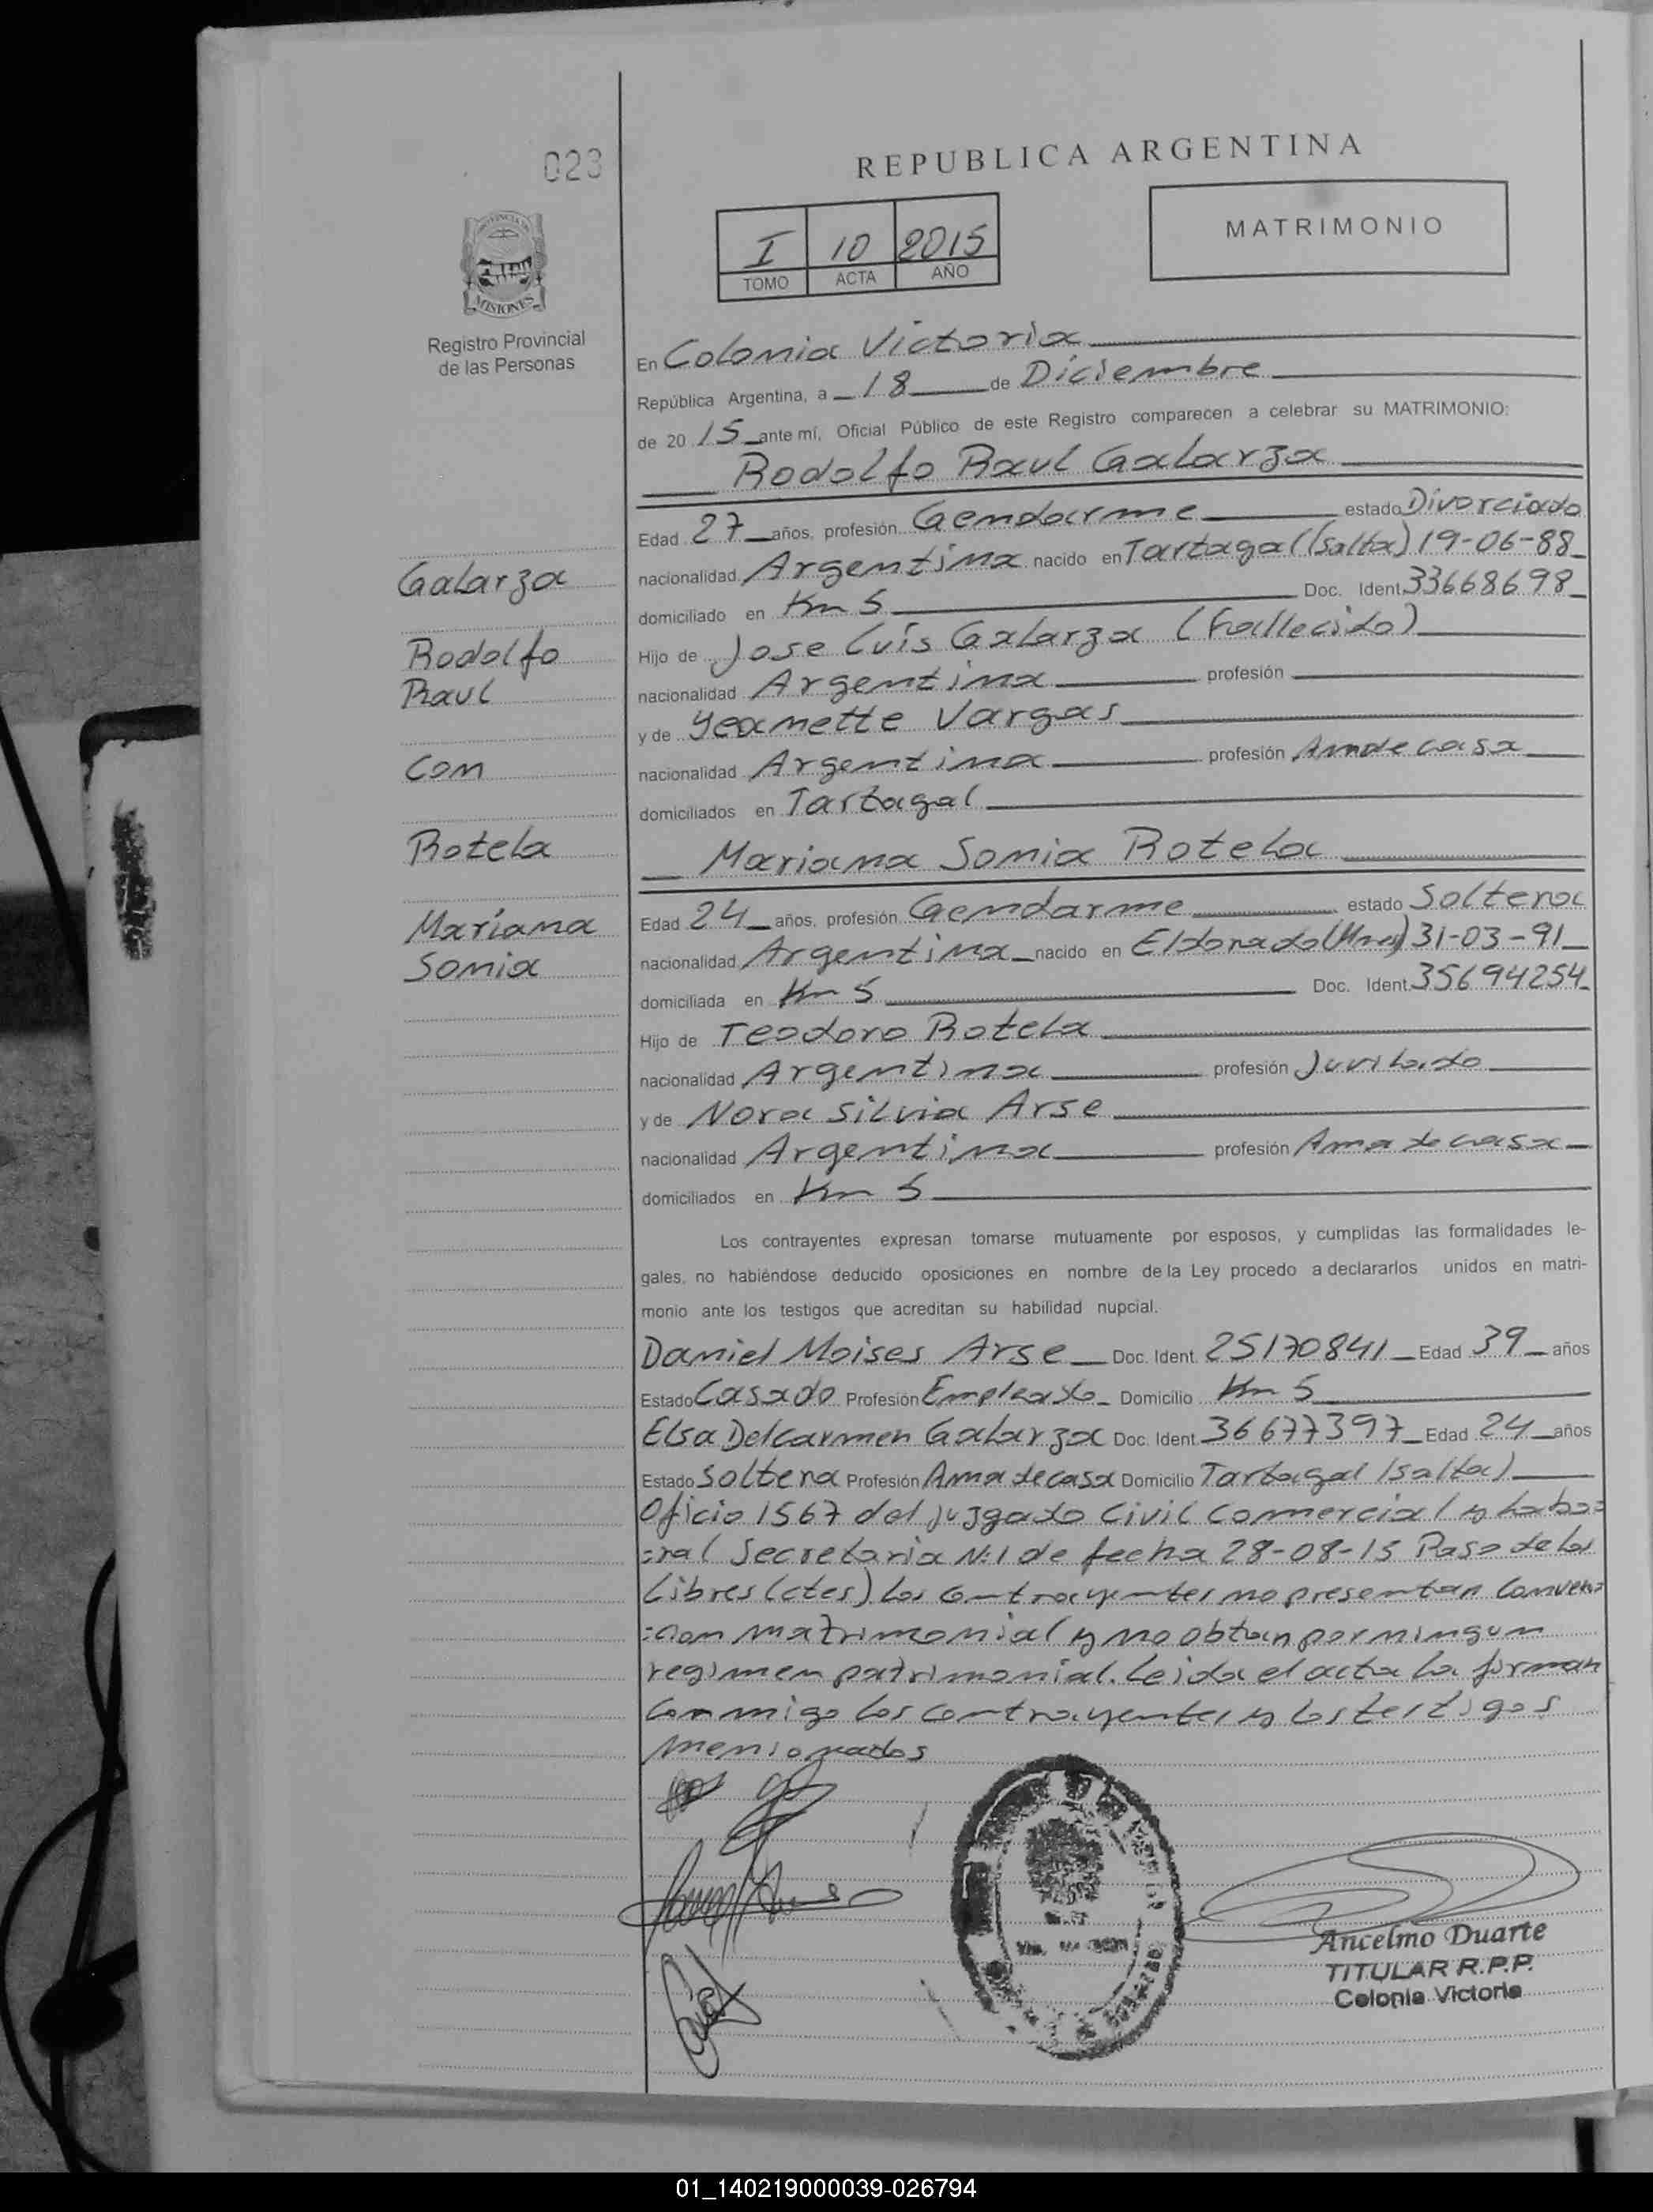 023
REPUBLICA ARGENTINA
MATRIMONIO
I 10 2015
TOMO ACTA AÑO
MISIONES
Registro Provincial
de las Personas
En Colonia Victoria
República Argentina, a 18 de Diciembre
de 20 15 ante mí, Oficial Público de este Registro comparecen a celebrar su MATRIMONIO:
Rodolfo Raul Galarza
Edad 27 años, profesión Gendarme estado Divorciado
nacionalidad Argentina nacido en Tartagal (Salta) 19-06-88
domiciliado en Km 5 Doc. Ident. 33668698
Hijo de Jose Luis Galarza (Fallecido)
nacionalidad Argentina profesión
y de Yeanette Vargas
nacionalidad Argentina profesión Amade casa
domiciliados en Tartagal
Mariana Sonia Rotela
Edad 24 años, profesión Gendarme estado Soltera
nacionalidad Argentina nacido en Eldorado (Mnes) 31-03-91
domiciliada en Km 5 Doc. Ident. 35694254
Hijo de Teodoro Rotela
nacionalidad Argentina profesión Juvilado
y de Nora Silvia Arse
nacionalidad Argentina profesión Ama de casa
domiciliados en Km 5
Galarza
Rodolfo
Raul
Con
Rotela
Mariana
Sonia
Los contrayentes expresan tomarse mutuamente por esposos, y cumplidas las formalidades le-
gales, no habiéndose deducido oposiciones en nombre de la Ley procedo a declararlos unidos en matri-
monio ante los testigos que acreditan su habilidad nupcial.
Daniel Moises Arse Doc. Ident. 25170841 Edad 39 años
Estado Casado Profesión Empleado Domicilio Km 5
Elsa Delcarmen Galarza Doc. Ident. 36677397 Edad 24 años
Estado Soltera Profesión Ama de casa Domicilio Tartagal (Salta)
Oficio 1567 del juzgado Civil Comercial y Labo=
=ral Secretaria N:1 de fecha 28-08-15 Paso de los
Libres (ctes) Los contrayentes no presentan Conven=
=cion matrimonial y no obtan por ningun
regimen patrimonial. Leida el acta la firman
Conmigo los contrayentes y los testigos
mensionados
Ancelmo Duarte
TITULAR R.P.P.
Colonia Victoria
01_140219000039-026794